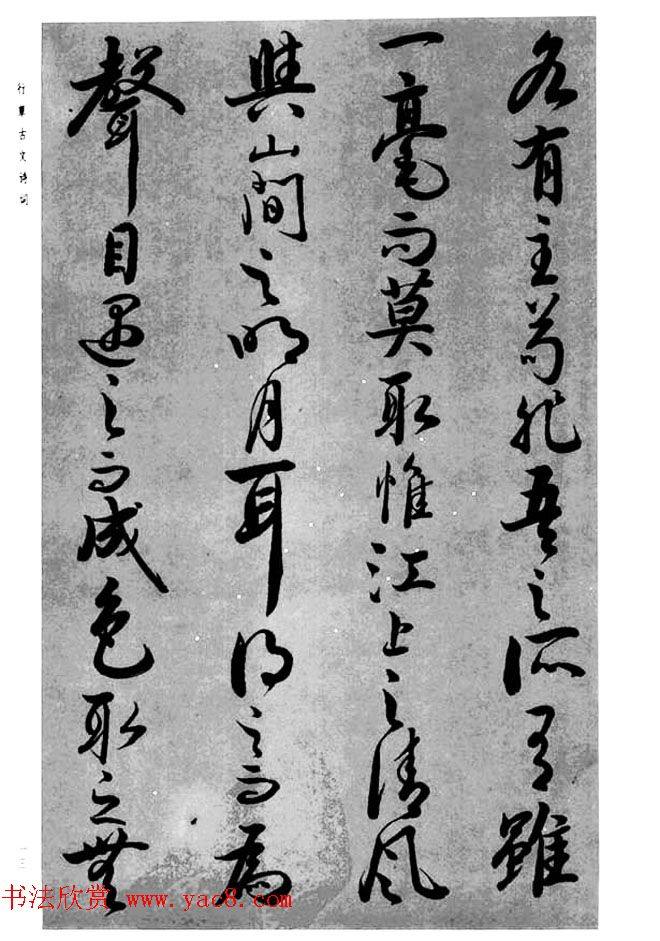 各有主苟非吾之所有雖
一毫而莫取惟江上之清風
與山間之明月耳得之而為
聲目遇之而成色取之無
行草古文诗词
一三
书法欣赏 www.yac8.com